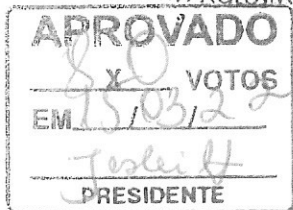 APROVADO
8 x 0 VOTOS
EM 15/03/22
PRESIDENTE